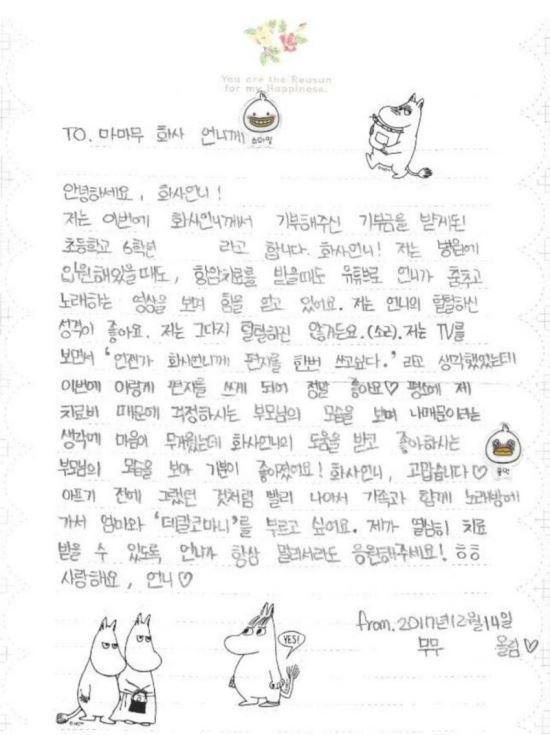 You are the Reason
for my Happiness.
TO. 마마무 화사 언니께
스마일
안녕하세요, 화사언니!
저는 이번에 화사언니께서 기부해주신 기부금을 받게된
초등학교 6학년 라고 합니다. 화사언니! 저는 병원에
입원해있을때도, 항암치료를 받을때도 유튜브로 언니가 춤추고
노래하는 영상을 보며 힘을 얻고 있어요. 저는 언니의 털털하신
성격이 좋아요. 저는 그다지 털털하진 않거든요.(소심). 저는 TV를
보면서 '언젠가 화사언니께 편지를 한번 쓰고싶다.' 라고 생각했었는데
이번에 이렇게 편지를 쓰게 되어 정말 좋아요♡ 평소에 제
치료비 때문에 걱정하시는 부모님의 모습을 보며 나때문이라는
생각에 마음이 무거웠는데 화사언니의 도움을 받고 좋아하시는
부모님의 모습을 보아 기분이 좋아졌어요! 화사언니, 고맙습니다♡
아프기 전에 그랬던 것처럼 빨리 나아서 가족과 함께 노래방에
가서 엄마와 '데칼코마니'를 부르고 싶어요. 제가 열심히 치료
받을 수 있도록 언니가 항상 멀리서라도 응원해주세요! ㅎㅎ
사랑해요, 언니♡
YES!
from. 2017년12월14일
무무 올림♡